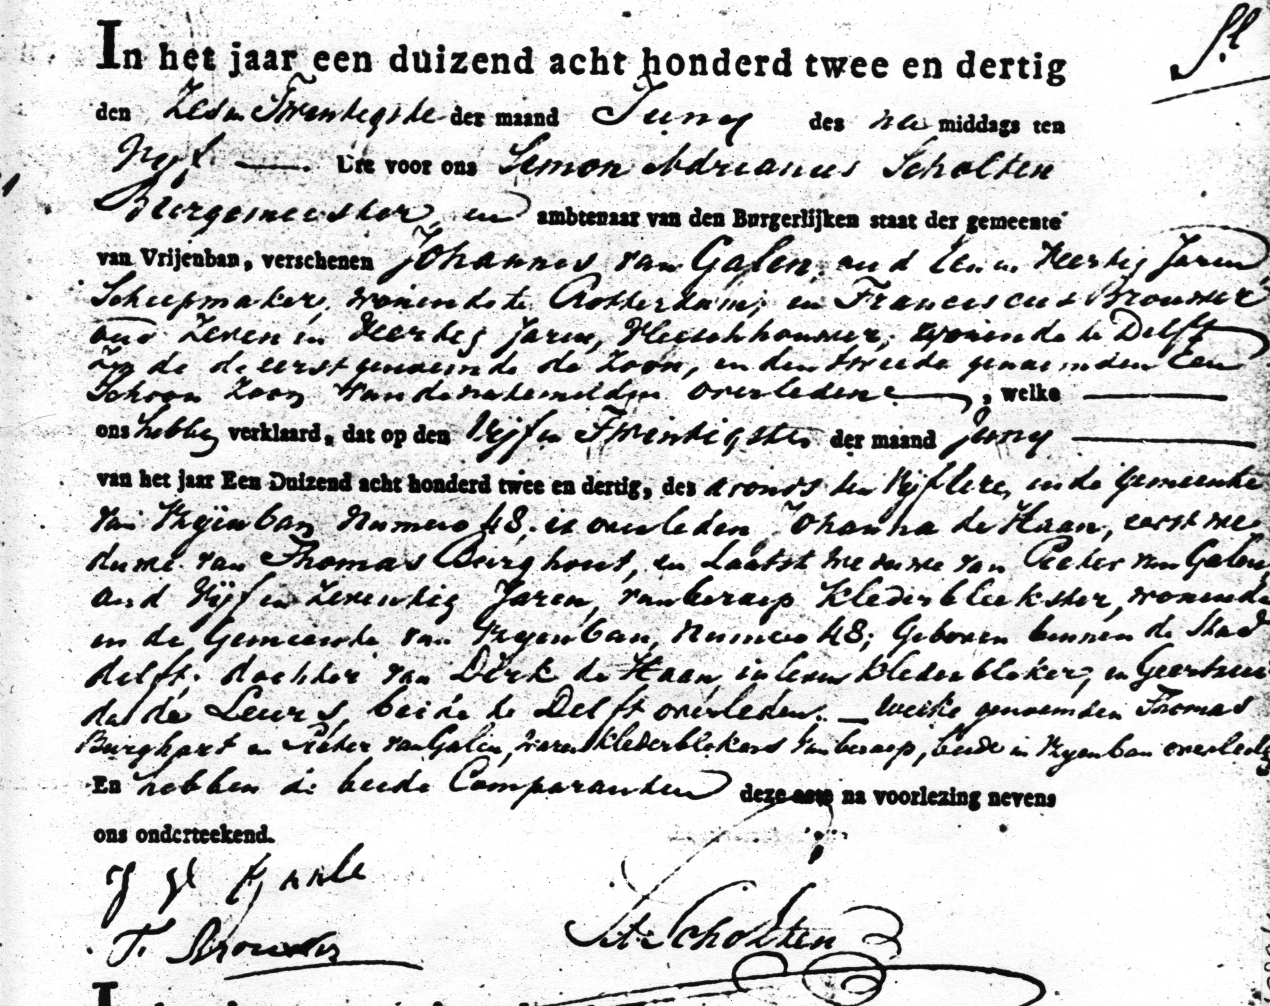 In het jaar een duizend acht honderd twee en dertig
den Zes en Twentigste der maand Juny des na middags ten
Vyf Ure voor ons Simon Adrianus Scholten
Burgemeester, en ambtenaar van den Burgerlijken staat der gemeente
van Vrijenban, verschenen Johannes van Galen oud Een en Veertig Jaren
Scheepmaker, wonende te Rotterdam, en Franciscus Brouwer
oud Zeven en Veertig Jaren, Vleeschhouwer, wonende te Delft
Zijnde de eerst genoemde de Zoon, en den tweede genoemden Een
Schoon Zoon van de natemelden overledene, welke
ons hebben verklaard, dat op den Vijf en Twentigsten der maand Juny
van het jaar Een Duizend acht honderd twee en dertig, des avonds ten Vijf Ure, in de Gemeente
van Vryenban Numero 48, is overleden Johanna de Haan, eerst we
duwe van Thomas Burghout, en Laatst weduwe van Pieter van Galen,
oud Vijf en Zeventig Jaren, van beroep Klederbleekster, wonende
in de Gemeente van Vryenban, Numero 48; Geboren binnen de Stad
delft. dochter van Dirk de Haan, in leven klederbleker, en Geertrui
da de Leurs, beide te Delft overleden. Welke genoemden Thomas
Burghart en Pieter van Galen, waren klederblekers van beroep, beide in Vryenban overleden
En hebben de beide Comparanten deze acte na voorlezing nevens
ons onderteekend.
F. Brouwer
S. A. Scholten